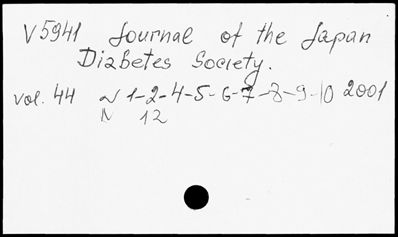 V5941 Journal of the Japan
Diabetes Society.
vol. 44 N 1-2-4-5-6-7-8-9-10 2001
N 12